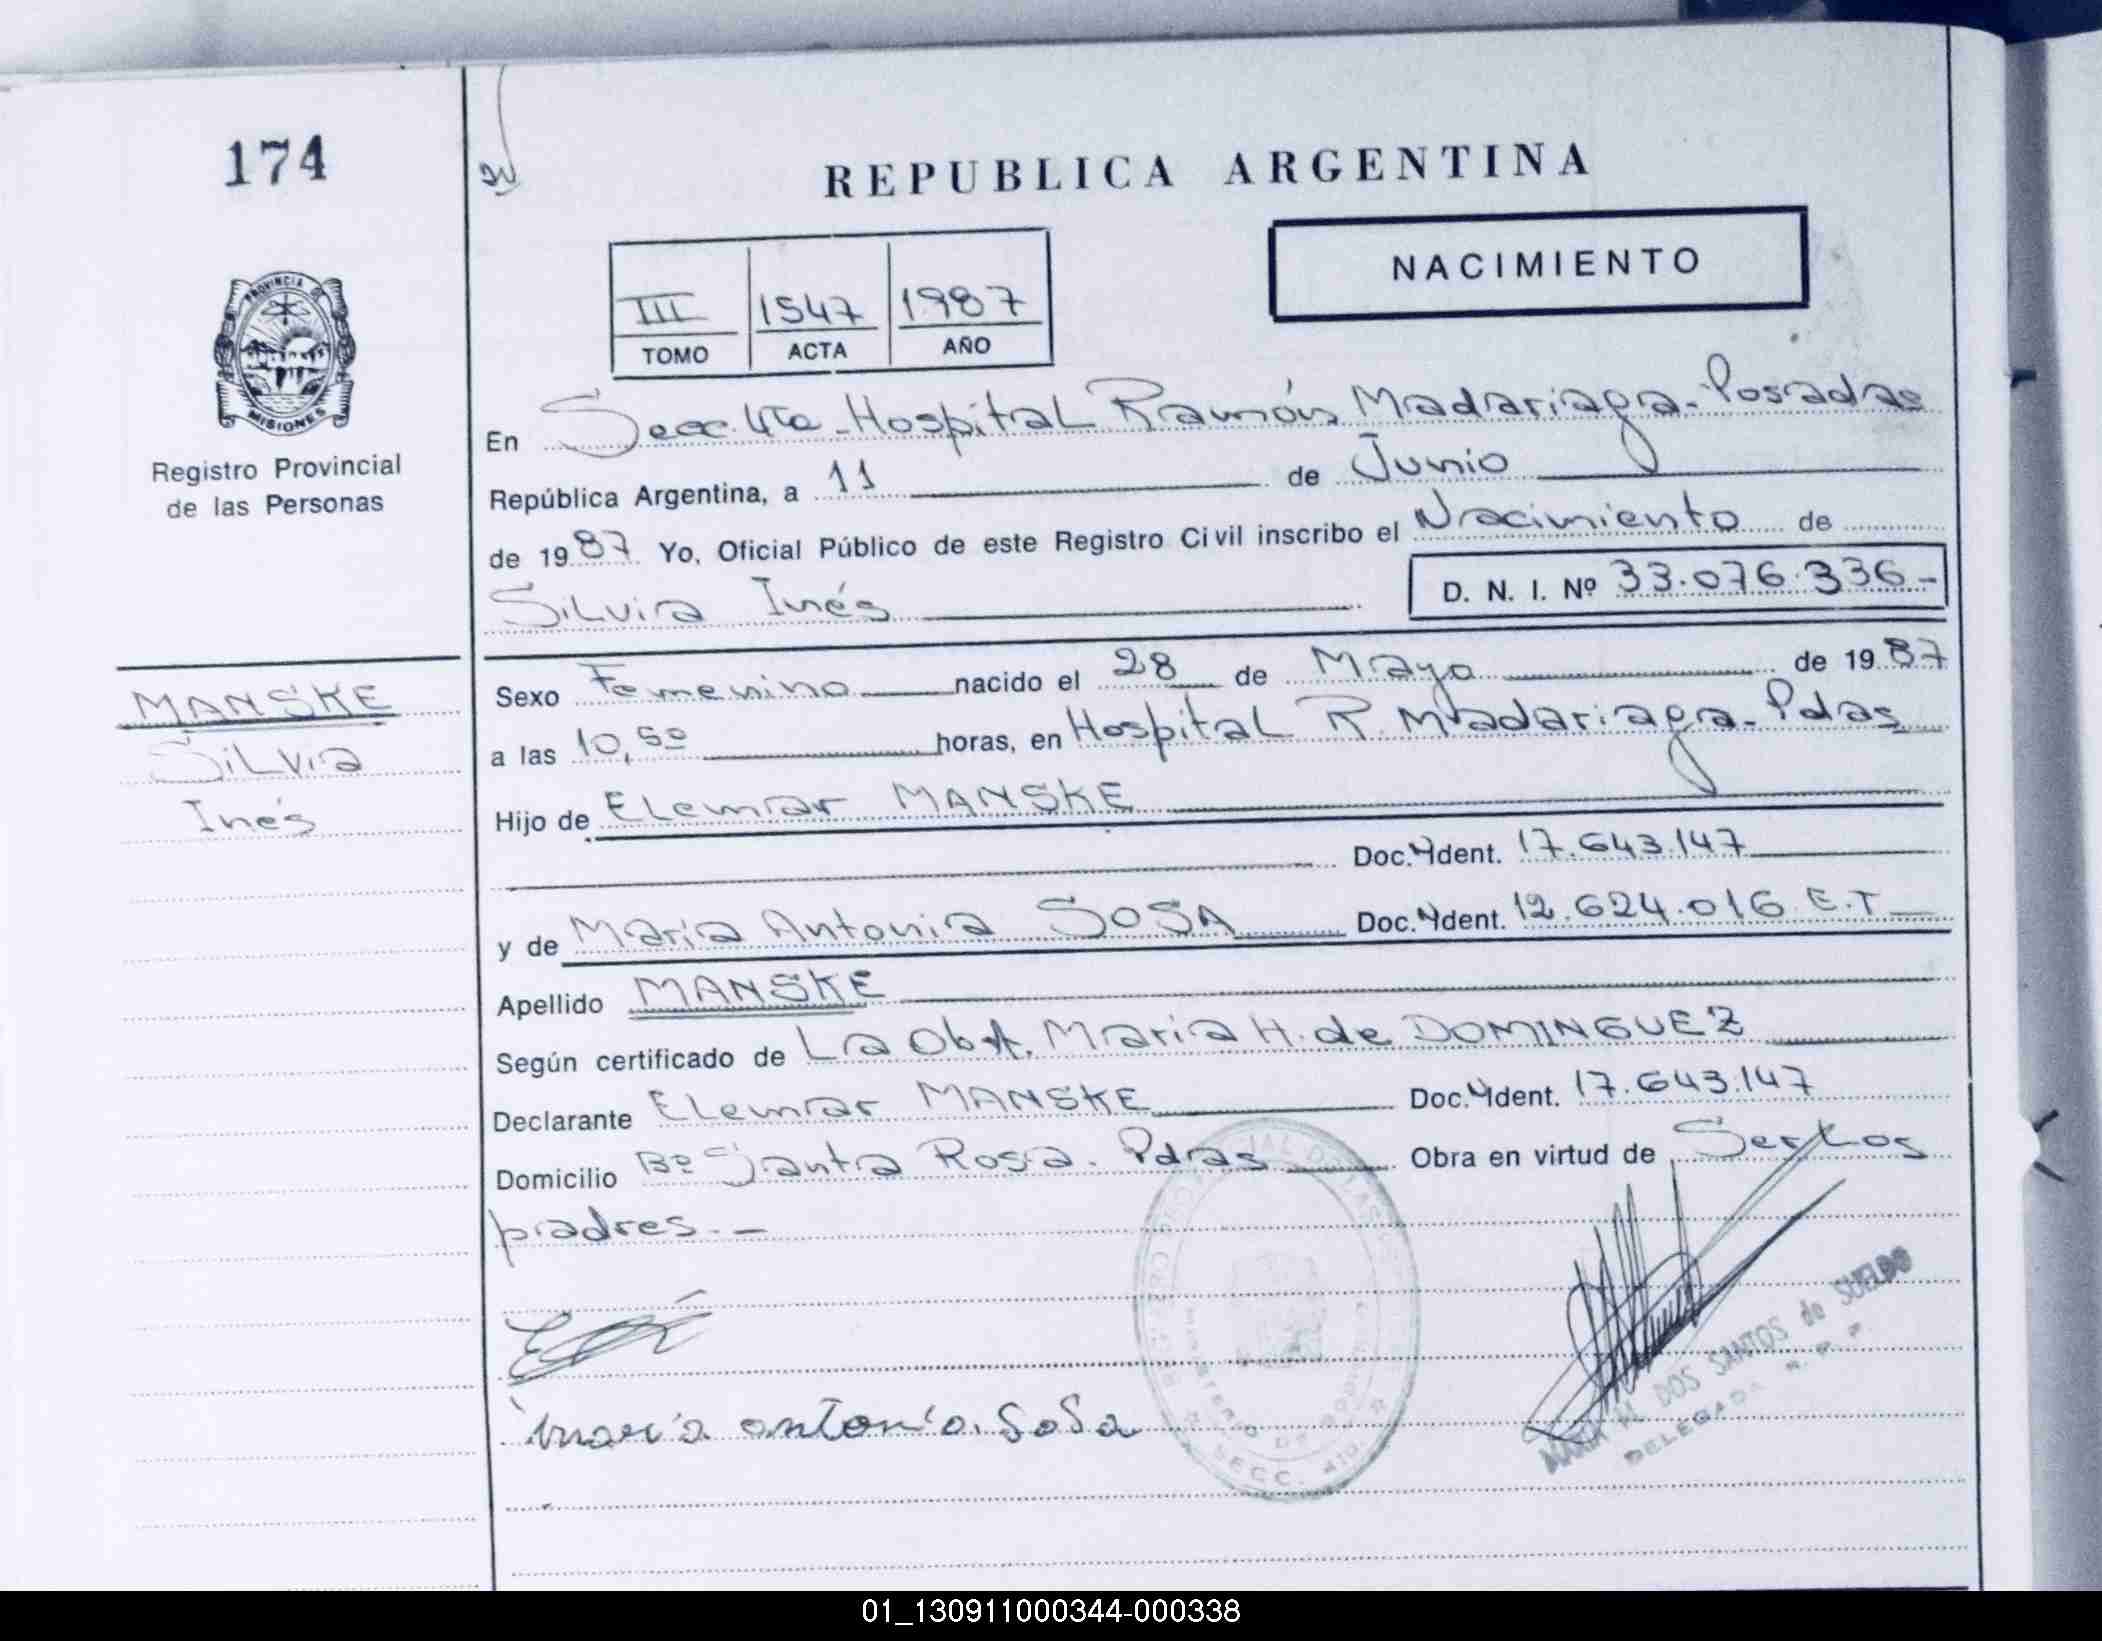 174
REPUBLICA ARGENTINA
NACIMIENTO
III 1547 1987
TOMO ACTA AÑO
PROVINCIA DE
MISIONES
Registro Provincial
de las Personas
En Secc. 4ta - Hospital Ramón Madariaga - Posadas
República Argentina, a 11 de Junio
de 1987 Yo, Oficial Público de este Registro Civil inscribo el Nacimiento de
Silvia Inés D. N. I. Nº 33.076.336.-
MANSKE
Silvia
Inés
Sexo Femenino nacido el 28 de Mayo de 1987
a las 10,50 horas, en Hospital R. Madariaga - Pdas
Hijo de Elemar MANSKE
Doc. Ident. 17.643.147
y de Maria Antonia SOSA Doc. Ident. 12.624.016 E.T
Apellido MANSKE
Según certificado de La Obst. Maria H. de DOMINGUEZ
Declarante Elemar MANSKE Doc. Ident. 17.643.147
Domicilio Bº Santa Rosa - Pdas Obra en virtud de Ser Los
padres.-
maria antonia Sosa
DOS SANTOS de SUELDO
DELEGADA
SECC. 4ta
01_130911000344-000338